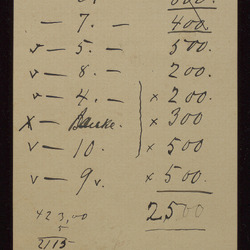 — 7. — 400
v — 5. — 500.
v — 8. — 200.
v — 4. — x 200.
x — Banke. x 300
v — 10. x 500
v — 9 v. x 500.
2,500
423,00
5
2115